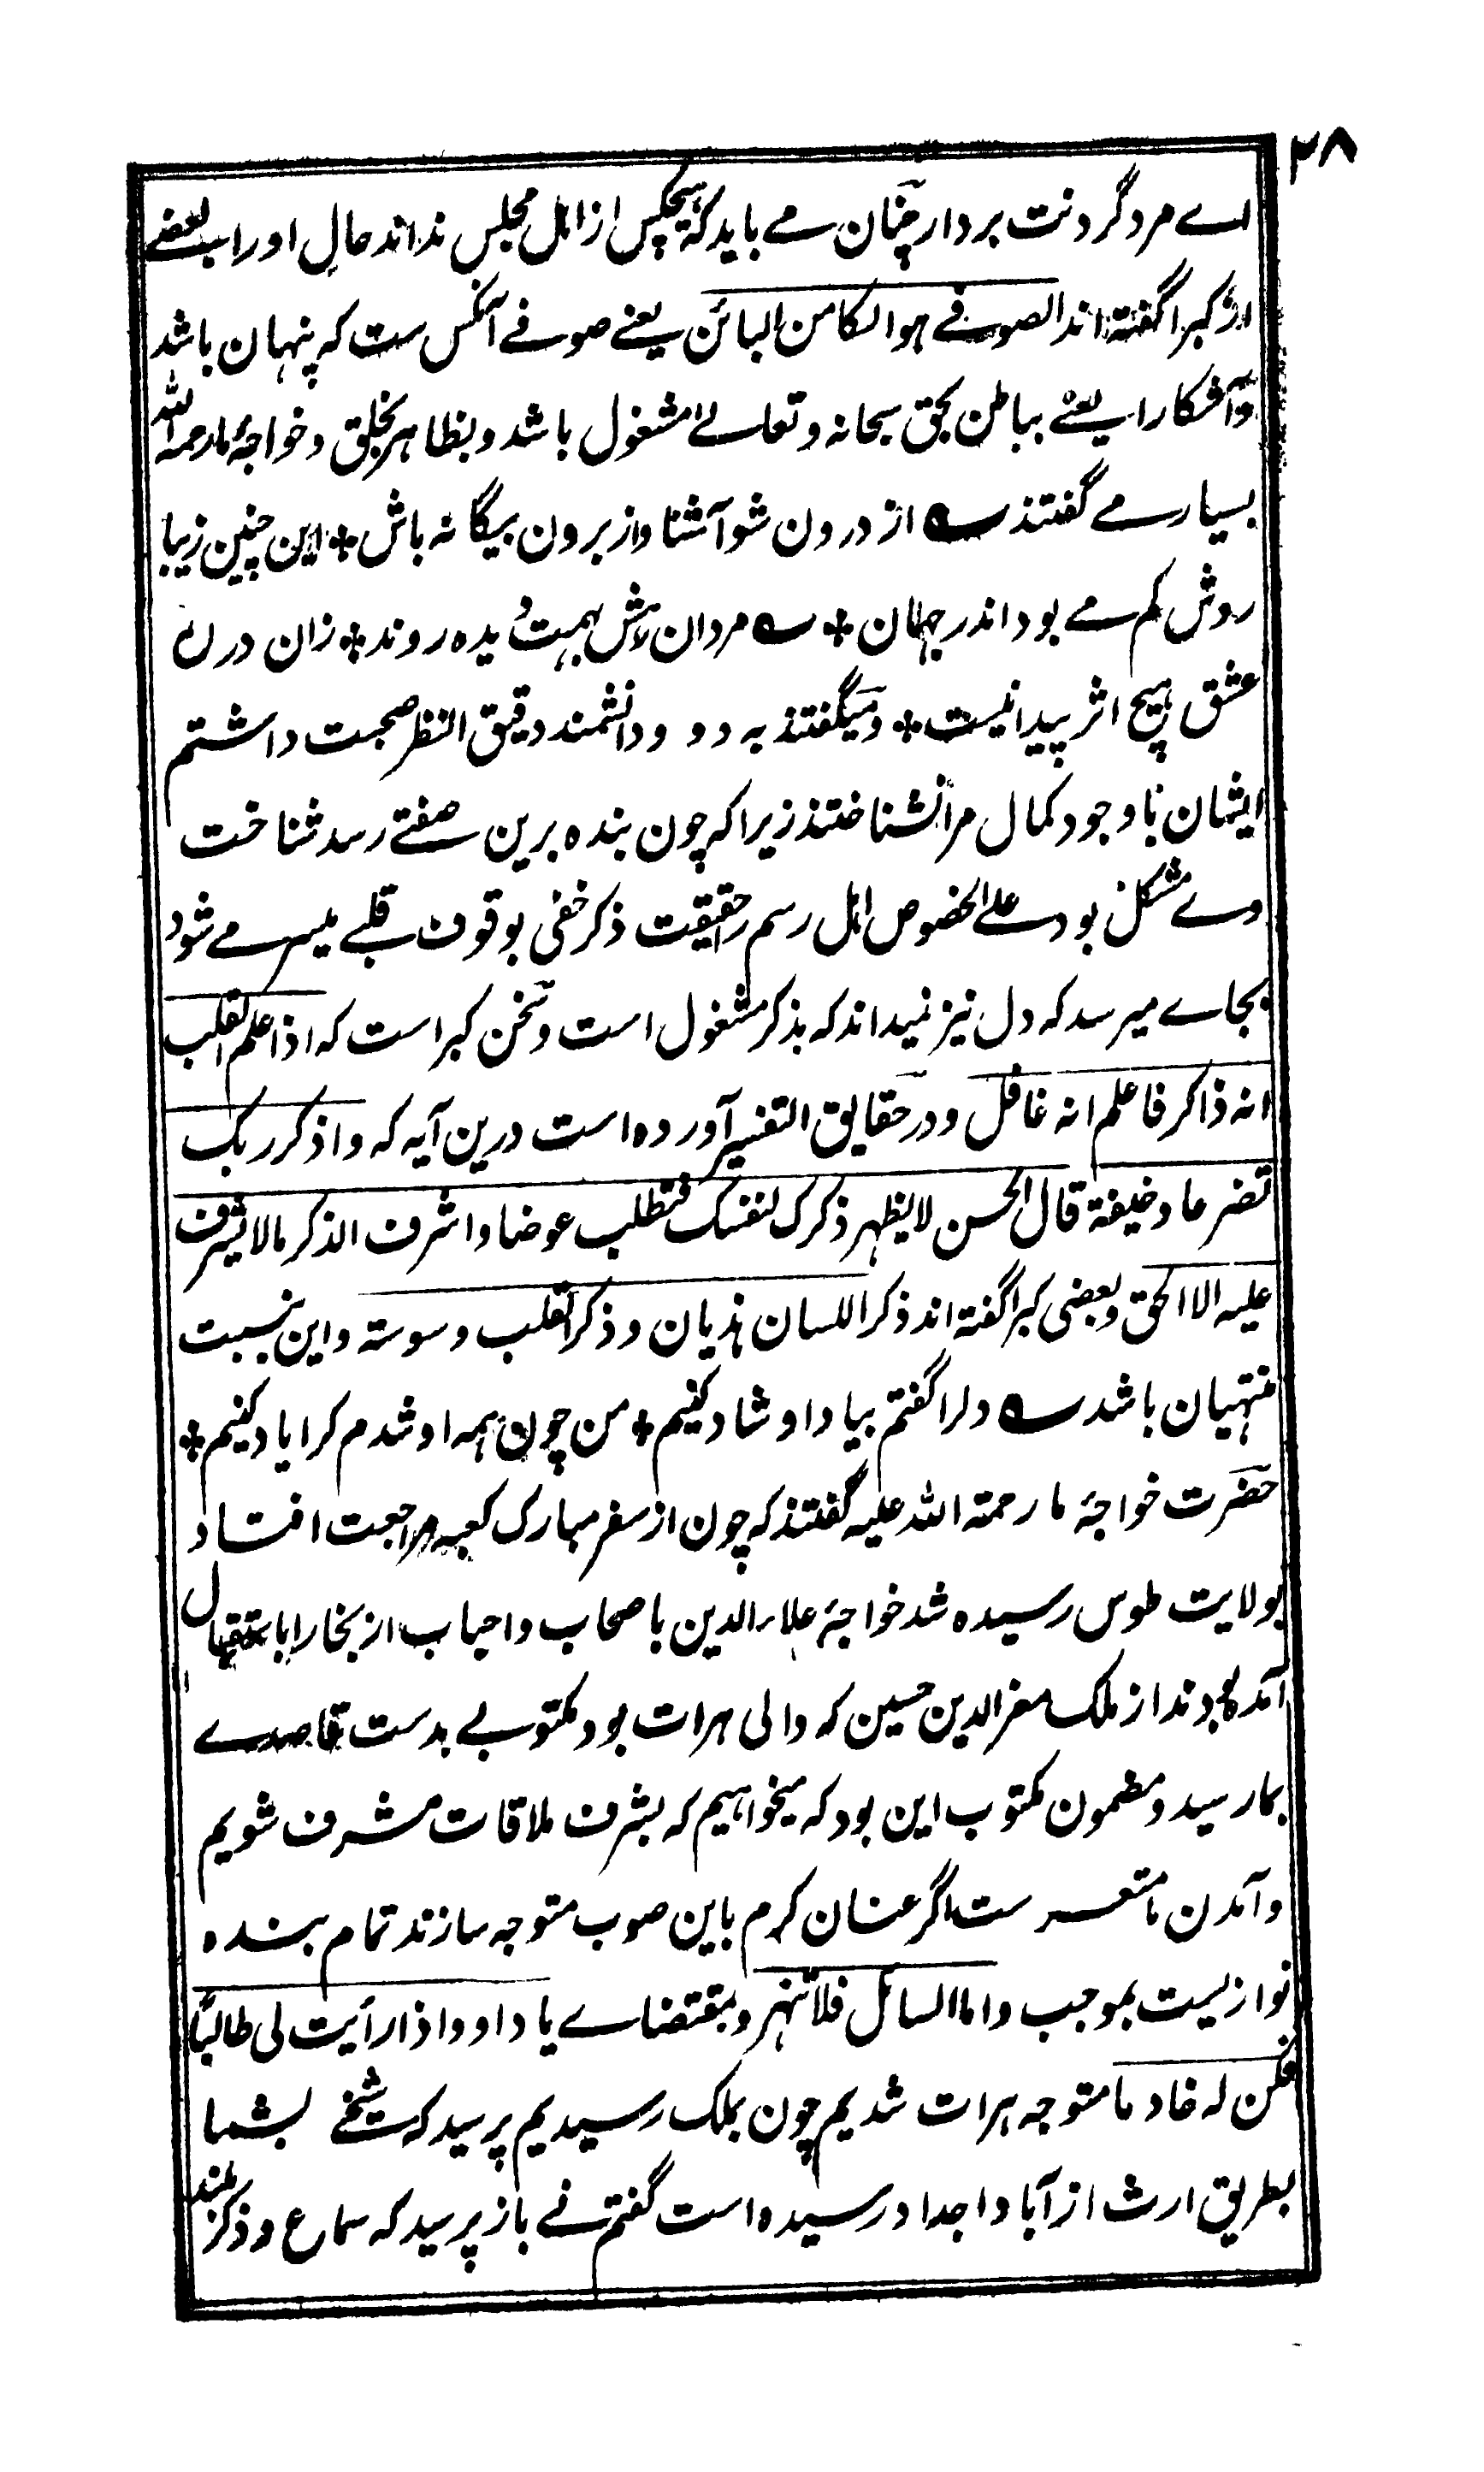 ۲۸
اے مرد گردنت بردار چنان مے باید کہ ہیچکس از اہل مجلس نداند حال او را بعضے
از کبرا گفتہ اند الصوفے ہو الکامن البائن یعنے صوفے آنکس ست کہ پنہان باشد
و آشکارا یعنے بباطن بحق سبحانہ و تعالےٰ مشغول باشد و بظاہر بخلق و خواجۂ ما رحمہ اللہ
بسیار مے گفتند ؎ از درون شو آشنا و از برون بیگانہ باش * این چنین زیبا
روش کم مے بود اندر جہان * ؎ مردان رہش بہمت و دیدہ روند * زان در رہ
عشق ہیچ اثر پیدا نیست * و میگفتند بہ دو دانشمند دقیق النظر صحبت داشتم
ایشان با وجود کمال مرا نشناختند زیرا کہ چون بندہ برین صفتے رسد شناخت
وے مشکل بود علی الخصوص اہل رسم را حقیقت ذکر خفی بوقوف قلبے میسر مے شود
بجاے میرسد کہ دل نیز نمیداند کہ بذکر مشغول است و سخن کبراست کہ اذا علم القلب
انہ ذاکر فاعلم انہ غافل و در حقایق التفسیر آوردہ است درین آیہ کہ واذکر ربک
تضرعا و خیفة قال الحسن لا یظہر ذکرک لنفسک فتطلب عوضا و اشرف الذکر ما لا یشرف
علیہ الا الحق و بعضی کبرا گفتہ اند ذکر اللسان ہذیان و ذکر القلب وسوسة و این نسبت
منتہیان باشد ؎ دلرا گفتم بیاد او شاد کنیم * من چون ہمہ او شدم کرا یاد کنیم *
حضرت خواجۂ ما رحمة اللہ علیہ گفتند کہ چون از سفر مبارک کعبہ مراجعت افتاد
بولایت طوس رسیدہ شد خواجۂ علاء الدین با صحاب و احباب از بخارا باستقبال
آمدہ بودند از ملک معزالدین حسین کہ والی ہرات بود مکتوبے بدست قاصدے
بما رسید و مضمون مکتوب این بود کہ میخواہیم کہ بشرف ملاقات مشرف شویم
و آمدن ما متعسر ست اگر عنان کرم باین صوب متوجہ سازند تمام بندہ
نوازیست بموجب و اما السائل فلا تنہر و بمقتضاے یا داود اذا رأیت لی طالباً
فکن لہ خادما متوجہ ہرات شدیم چون بملک رسیدیم پرسید کہ شیخے بشما
بطریق ارث از آبا و اجداد رسیدہ است گفتم نے باز پرسید کہ سماع و ذکر بلند